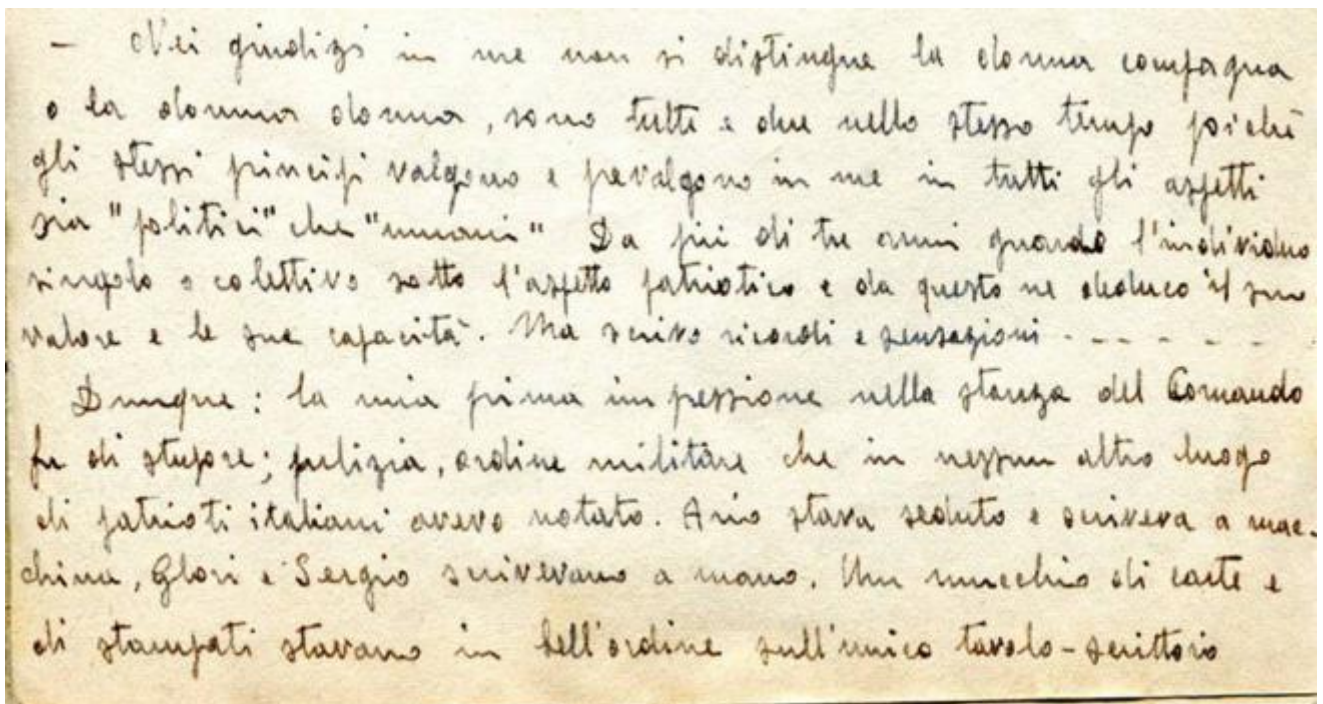 - Nei giudizi in me non si distingue la donna compagna
o la donna donna, sono tutte e due nello stesso tempo poichè
gli stessi principi valgono e pevalgono in me in tutti gli aspetti
sia "politici" che "umani" Da più di tre anni guardo l'individuo
singolo o colettivo sotto l'aspetto patriotico e da questo ne deduco il suo
valore e le sue capacità. Ma scrivo ricordi e sensazioni - - - - - -
Dunque: la mia prima impessione nella stanza del Comando
fu di stupore; pulizia, ordine militare che in nessun altro luogo
di patrioti italiani avevo notato. Ario stava seduto e scriveva a mac-
china, Glori e Sergio scrivevano a mano. Un mucchio di carte e
di stampati stavano in bell'ordine sull'unico tavolo-scrittoio